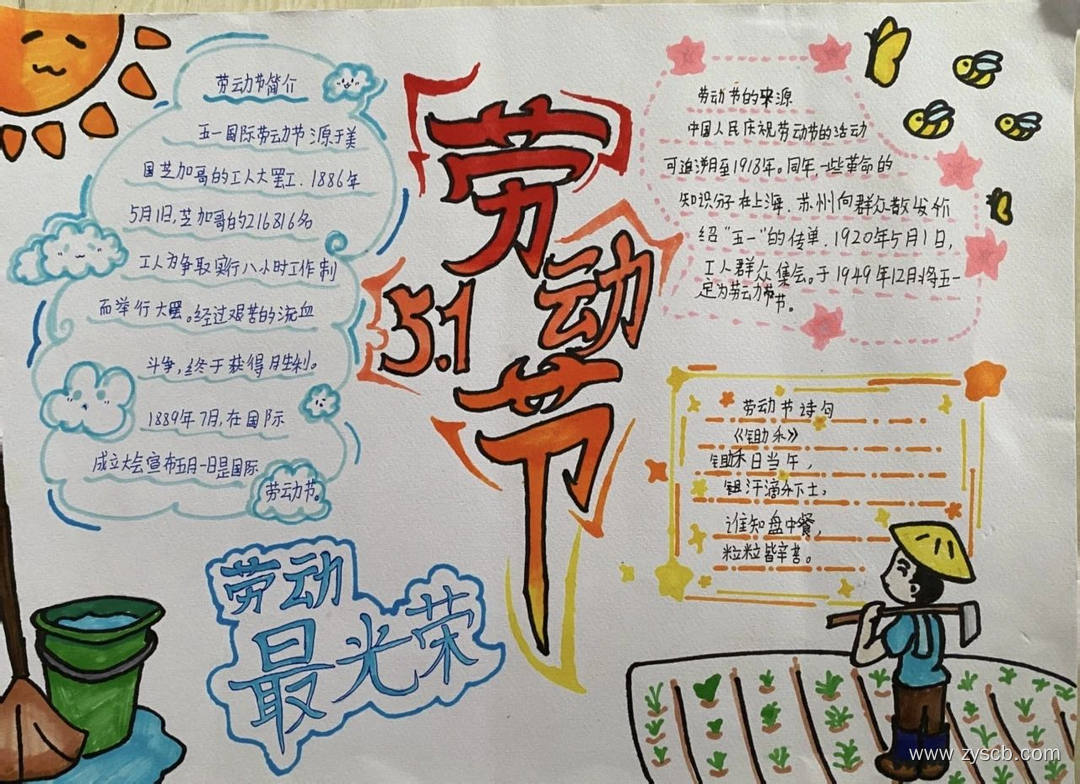 劳动节简介
五一国际劳动节源于美
国芝加哥的工人大罢工.1886年
5月1日,芝加哥的216816名
工人为争取实行八小时工作制
而举行大罢。经过艰苦的流血
斗争,终于获得胜利。
1889年7月,在国际
成立大会宣布五月一日是国际
劳动节。
劳动节
5.1
劳动
最光荣
劳动节的来源
中国人民庆祝劳动节的活动
可追溯至1918年。同年,一些革命的
知识分子在上海、苏州向群众散发介
绍“五一”的传单.1920年5月1日,
工人群众集会。于1949年12月将五一
定为劳动节。
劳动节诗句
《锄禾》
锄禾日当午,
锄汗滴禾下土,
谁知盘中餐,
粒粒皆辛苦。
www.zyscb.com